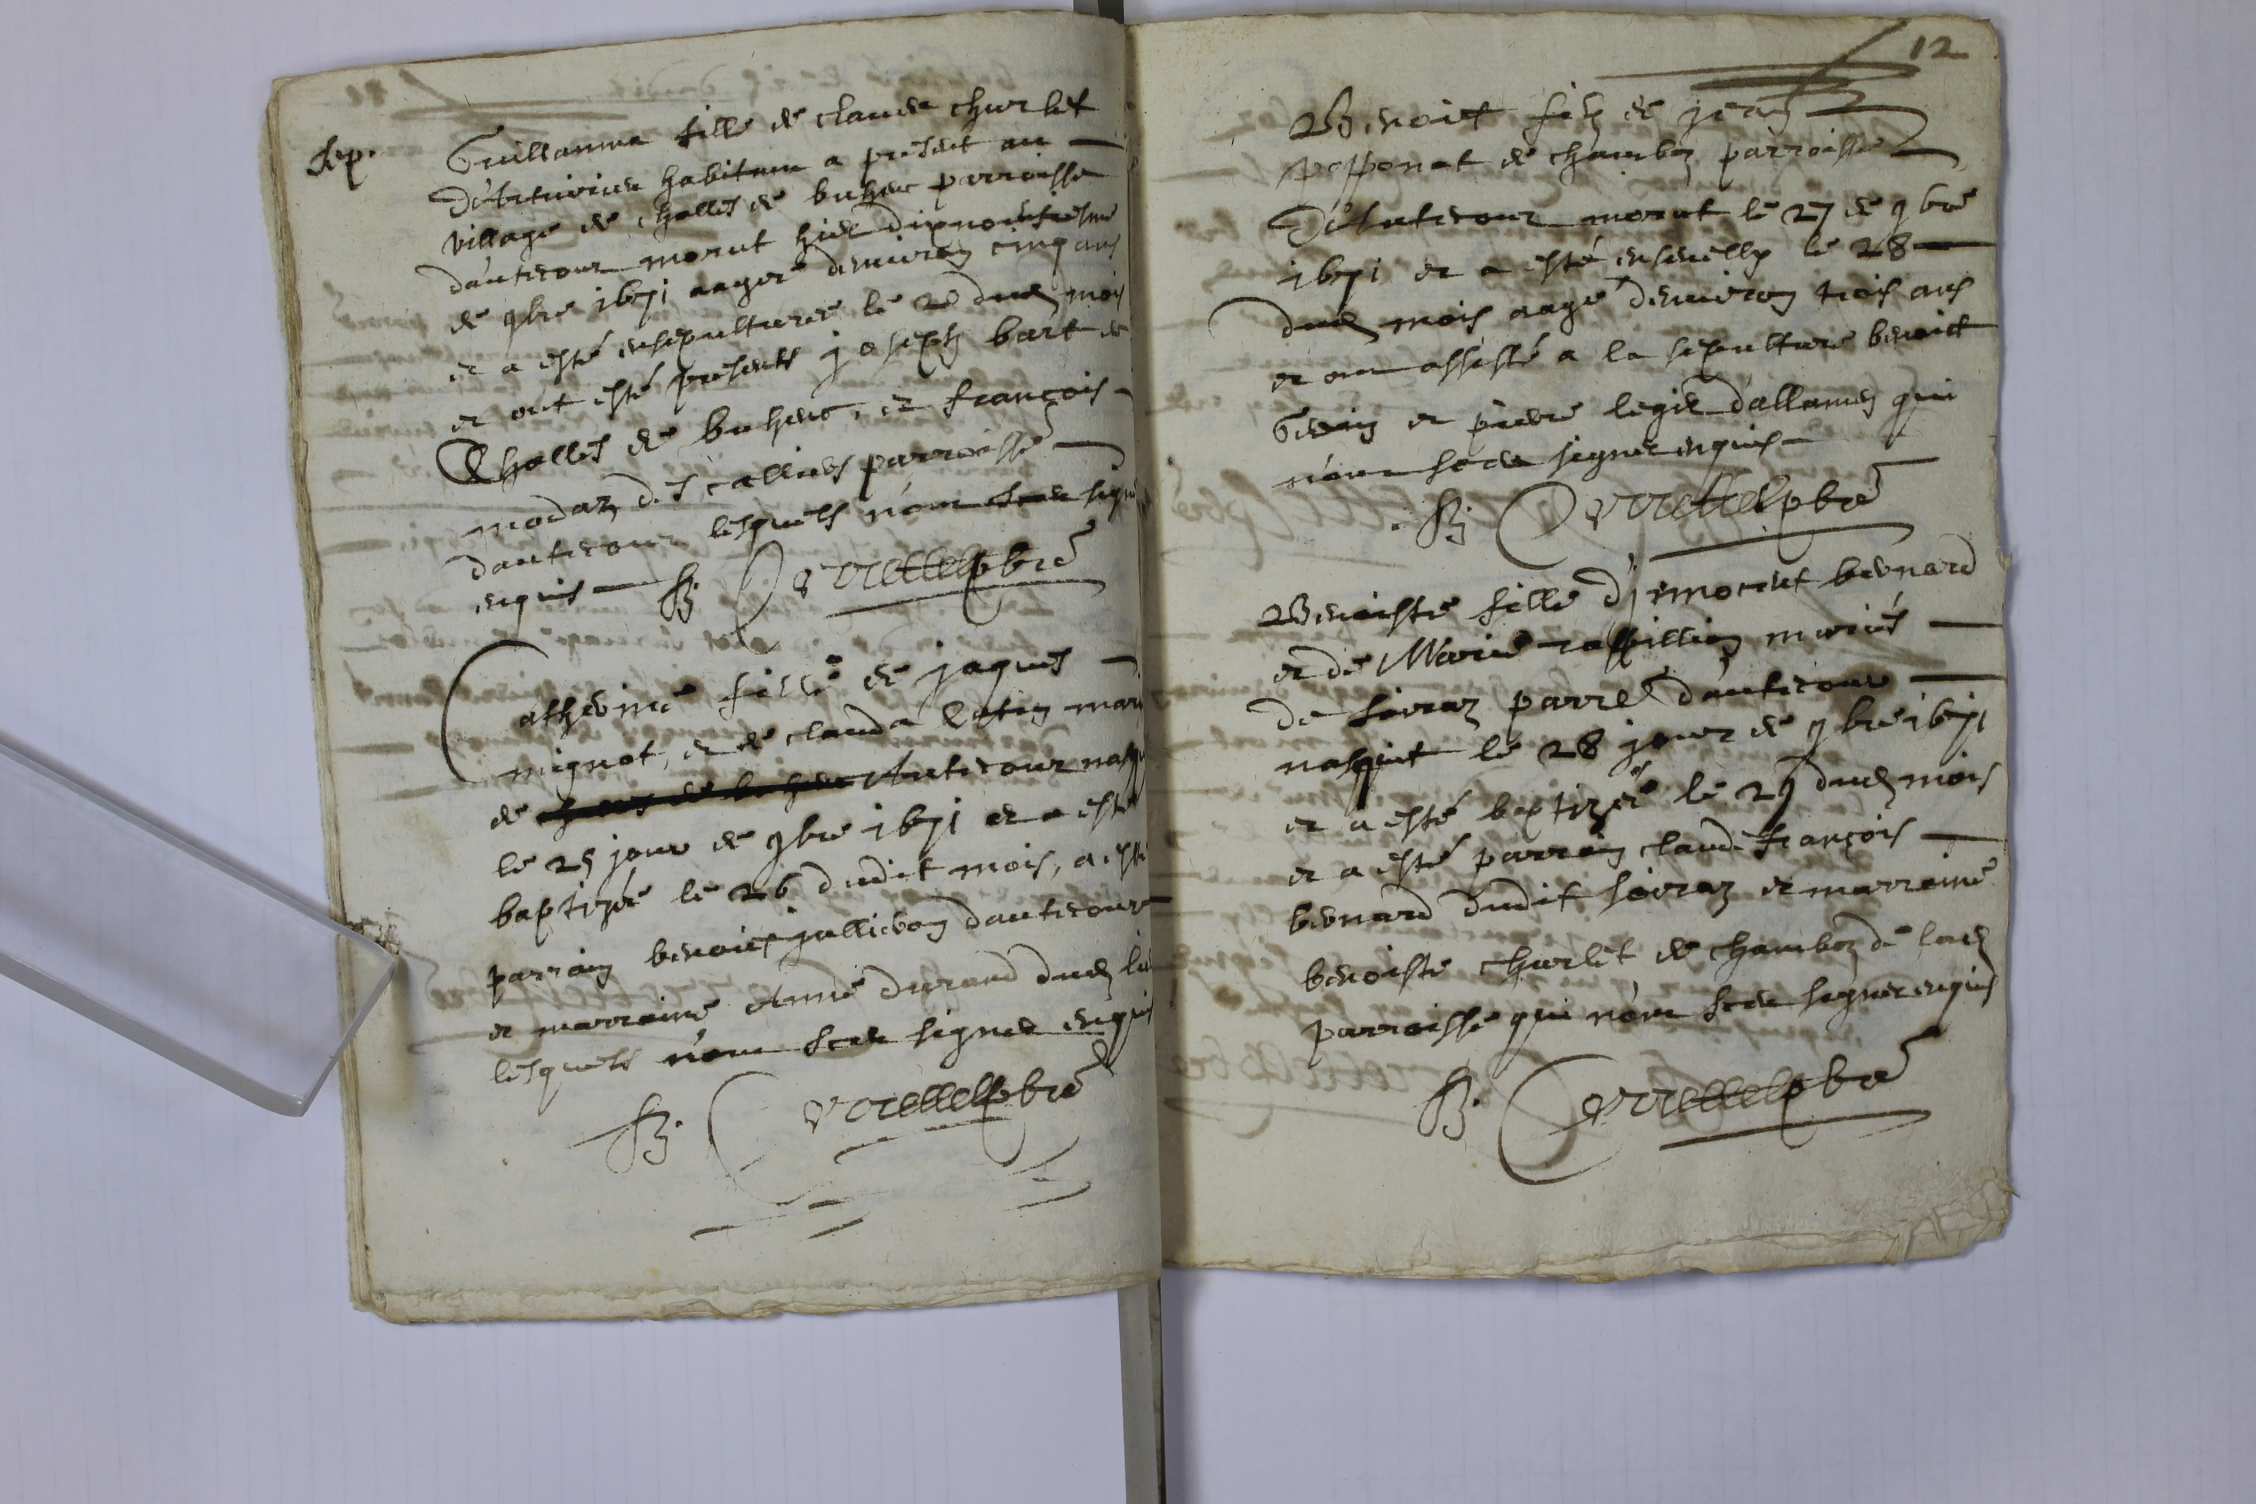 Sep.
Guillauma fille de claude churlet
d'Arturieu habitant a present au
village de challes de buhenc parroisse
dauticour morut hier dixneufiesme
de 9bre 1671 aagee denuiron cinq ans
et a esté ensepulturee le 20 dud mois
et ont esté presents joseph bart de
Challes de buhenc, et françois
modaz des callieus parroisse
dauticour lesquels n'ont sceu signer
enquis
B. Correllet pbre
Catherine fille de jaques
mignot, et de clauda mari
de Auticour nasqui
le 25 jour de 9bre 1671 et a esté
baptizée le 26 dudit mois, a esté
parrain benoict jullieron dauticour
et marraine Anne durand dud lieu
lesquels n'ont sceu signer enquis
B. Correllet pbre
12
Benoict filz de jean
popponet de chamboz parroisse
d'Auticour morut le 27 de 9bre
1671 et a esté enseuelly le 28
dud mois aagé denuiron trois ans
et ont assisté a la sepulture benoict
Genin et pierre legier d'allamen qui
n'ont sceu signer enquis
B. Correllet pbre
Benoiste fille d'jnnocent bernard
et de Marie raspillion mariés
de sivraz parre d'auticour
nasquit le 28 jour de 9bre 1671
et a esté baptizée le 29 dud mois
et a esté parrain claude françois
bernard dudit sivraz et marraine
benoiste churlet de chamboz de lad
parroisse qui n'ont sceu signer enquis
B. Correllet pbre